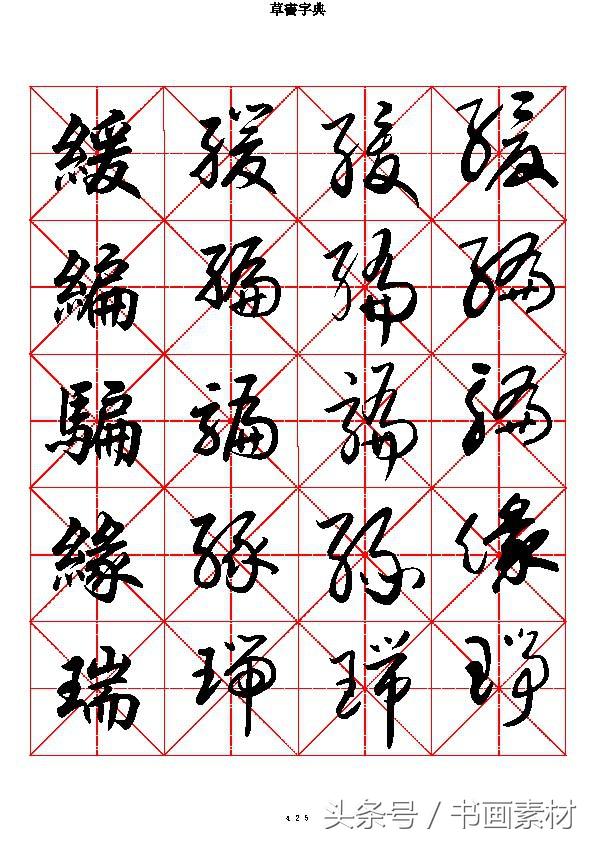 草書字典
緩 緩 緩 緩
編 編 編 編
騙 騙 騙 騙
緣 緣 緣 緣
瑞 瑞 瑞 瑞
4.25
头条号 / 书画素材